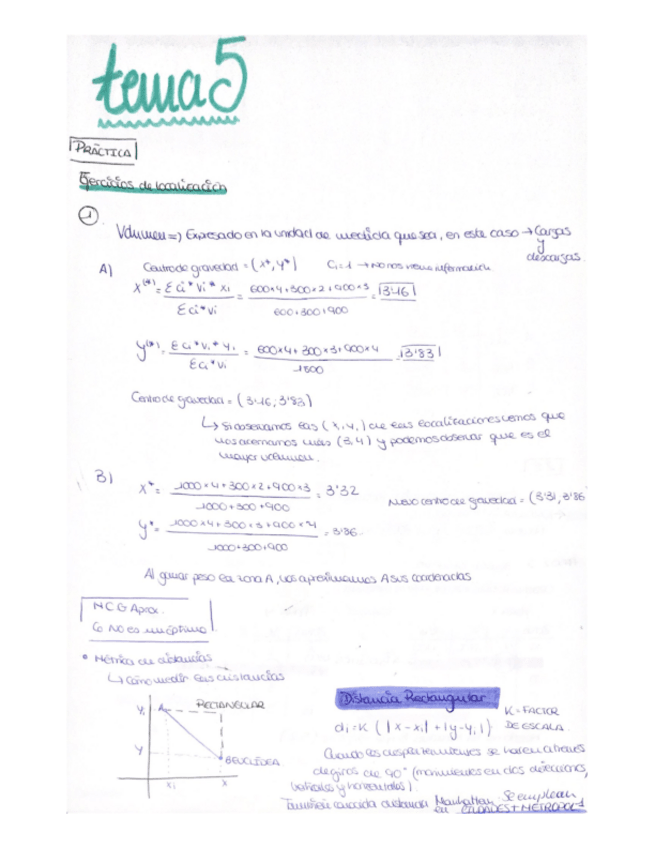 tema 5
PRÁCTICA
Ejercicios de localización
1
Volumen => Expresado en la unidad de medida que sea, en este caso → Cargas
y
descargas.
A) Centro de gravedad = (x*, y*) Ci=1 → No nos viene información
X(*) = Σ ci * vi * xi / Σ ci * vi = 600×4+300×2+900×3 / 600+300+900 = 3'16
y(*) = Σ ci * vi * yi / Σ ci * vi = 600×4+300×3+900×4 / 1800 = 3'83
Centro de gravedad = (3'16, 3'83)
↳ Si observamos las (x, y,) de las localizaciones vemos que
nos acercamos más (3,4) y podemos observar que es el
mayor volumen.
B) x* = 1000×4+300×2+900×3 / 1000+300+900 = 3'32
Nuevo centro de gravedad = (3'31, 3'86
y* = 1000×4+300×3+900×4 / 1000+300+900 = 3'86
Al ganar peso la zona A, nos aproximamos A sus coordenadas
NCG Aprox.
↳ No es un óptimo
• Métrica de distancias
↳ Cómo medir las distancias
yi A RECTANGULAR
y B EUCLÍDEA
xi x
Distancia Rectangular
di = K (|x - xi| + |y - yi|)
K = FACTOR
DE ESCALA
Cuando los desplazamientos se hacen a través
de giros de 90° (movimientos en dos direcciones,
verticales y horizontales).
También conocida distancia Manhattan. Se emplean
en CIUDADES + METRÓPOL